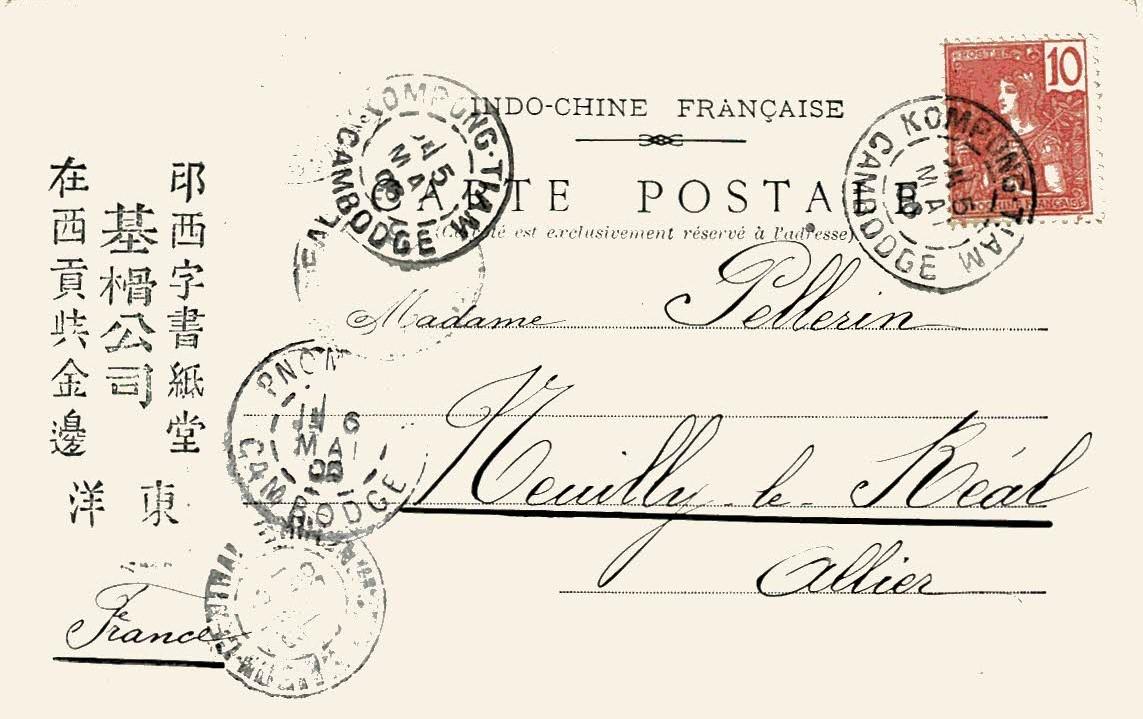 INDO-CHINE FRANÇAISE
CARTE POSTALE
(Ce côté est exclusivement réservé à l'adresse)
POSTES
10
INDOCHINE FRANÇAISE
KOMPONG-THAM
5
MAI
CAMBODGE
KOMPONG-THAM
5
MAI
08
CAMBODGE
Madame Pellerin
PNOM
6
MAI
08
CAMBODGE
Neuilly-le-Réal
Allier
France
印西字書紙堂
基楇公司
在西貢共金邊
東洋